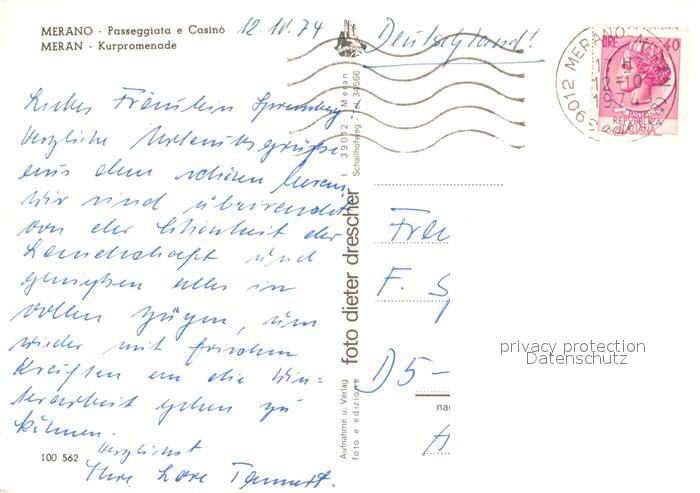 MERANO - Passeggiata e Casinò
MERAN - Kurpromenade
12.10.74
Deutschland!
Liebes Fräulein Spremberg
herzliche Urlaubsgrüße
aus dem schönen Meran
Wir sind überwältigt
von der Schönheit der
Landschaft und
genießen alles in
vollen Zügen, um
wieder mit frischen
Kräften an die Win=
terarbeit gehen zu
können.
Herzlichst
Ihre Lore
100 562
Aufnahme u. Verlag
foto e edizione
foto dieter drescher
I 39012 Meran
Schallhofweg - T. 34566
39012 MERANO
12-10
1974
LIRE 40
REPUBBLICA
ITALIANA
F. S
D5-
na
privacy protection
Datenschutz